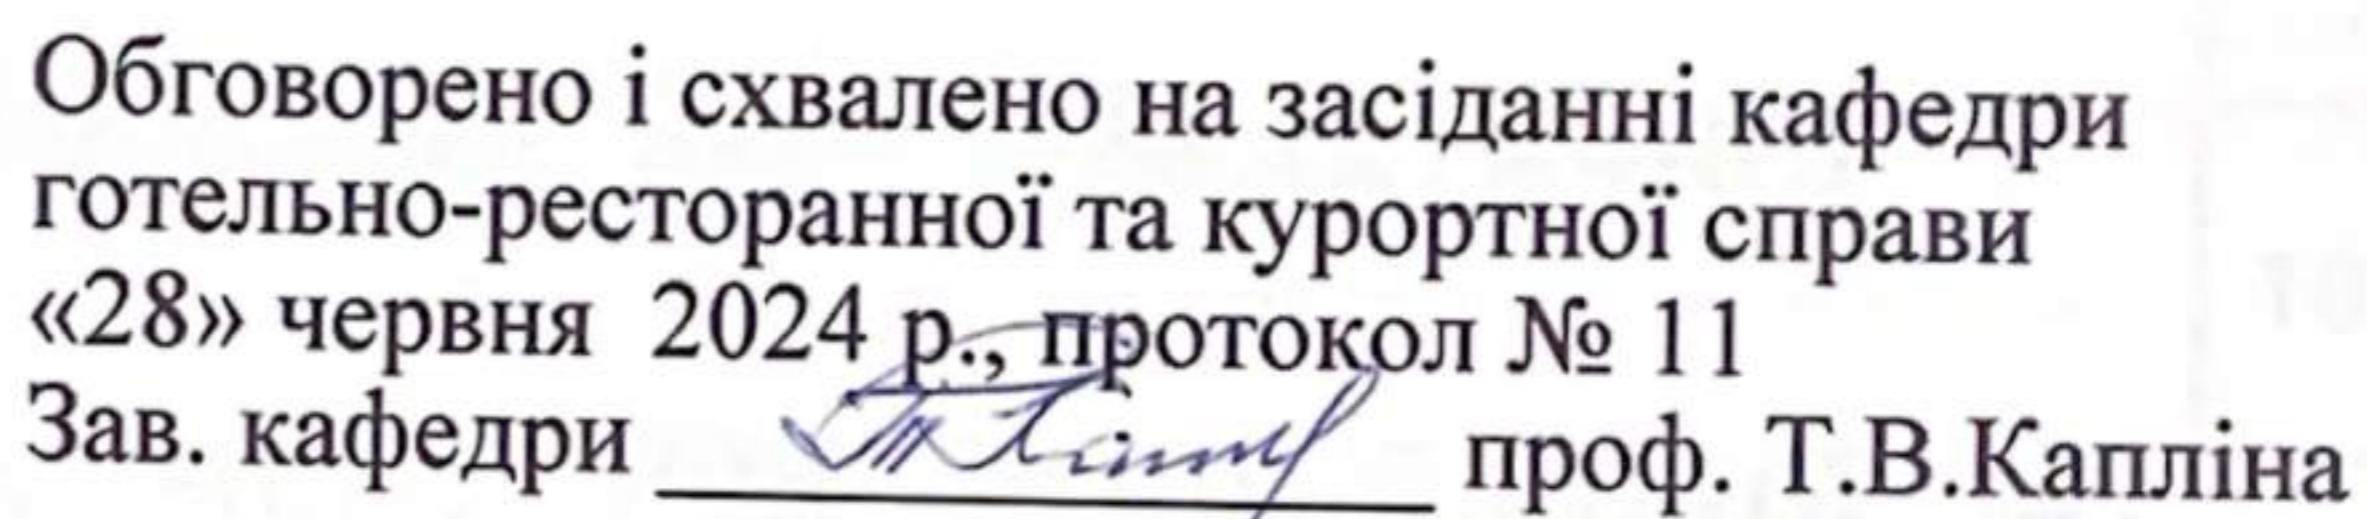 Обговорено і схвалено на засіданні кафедри
готельно-ресторанної та курортної справи
«28» червня 2024 р., протокол № 11
Зав. кафедри проф. Т.В.Капліна